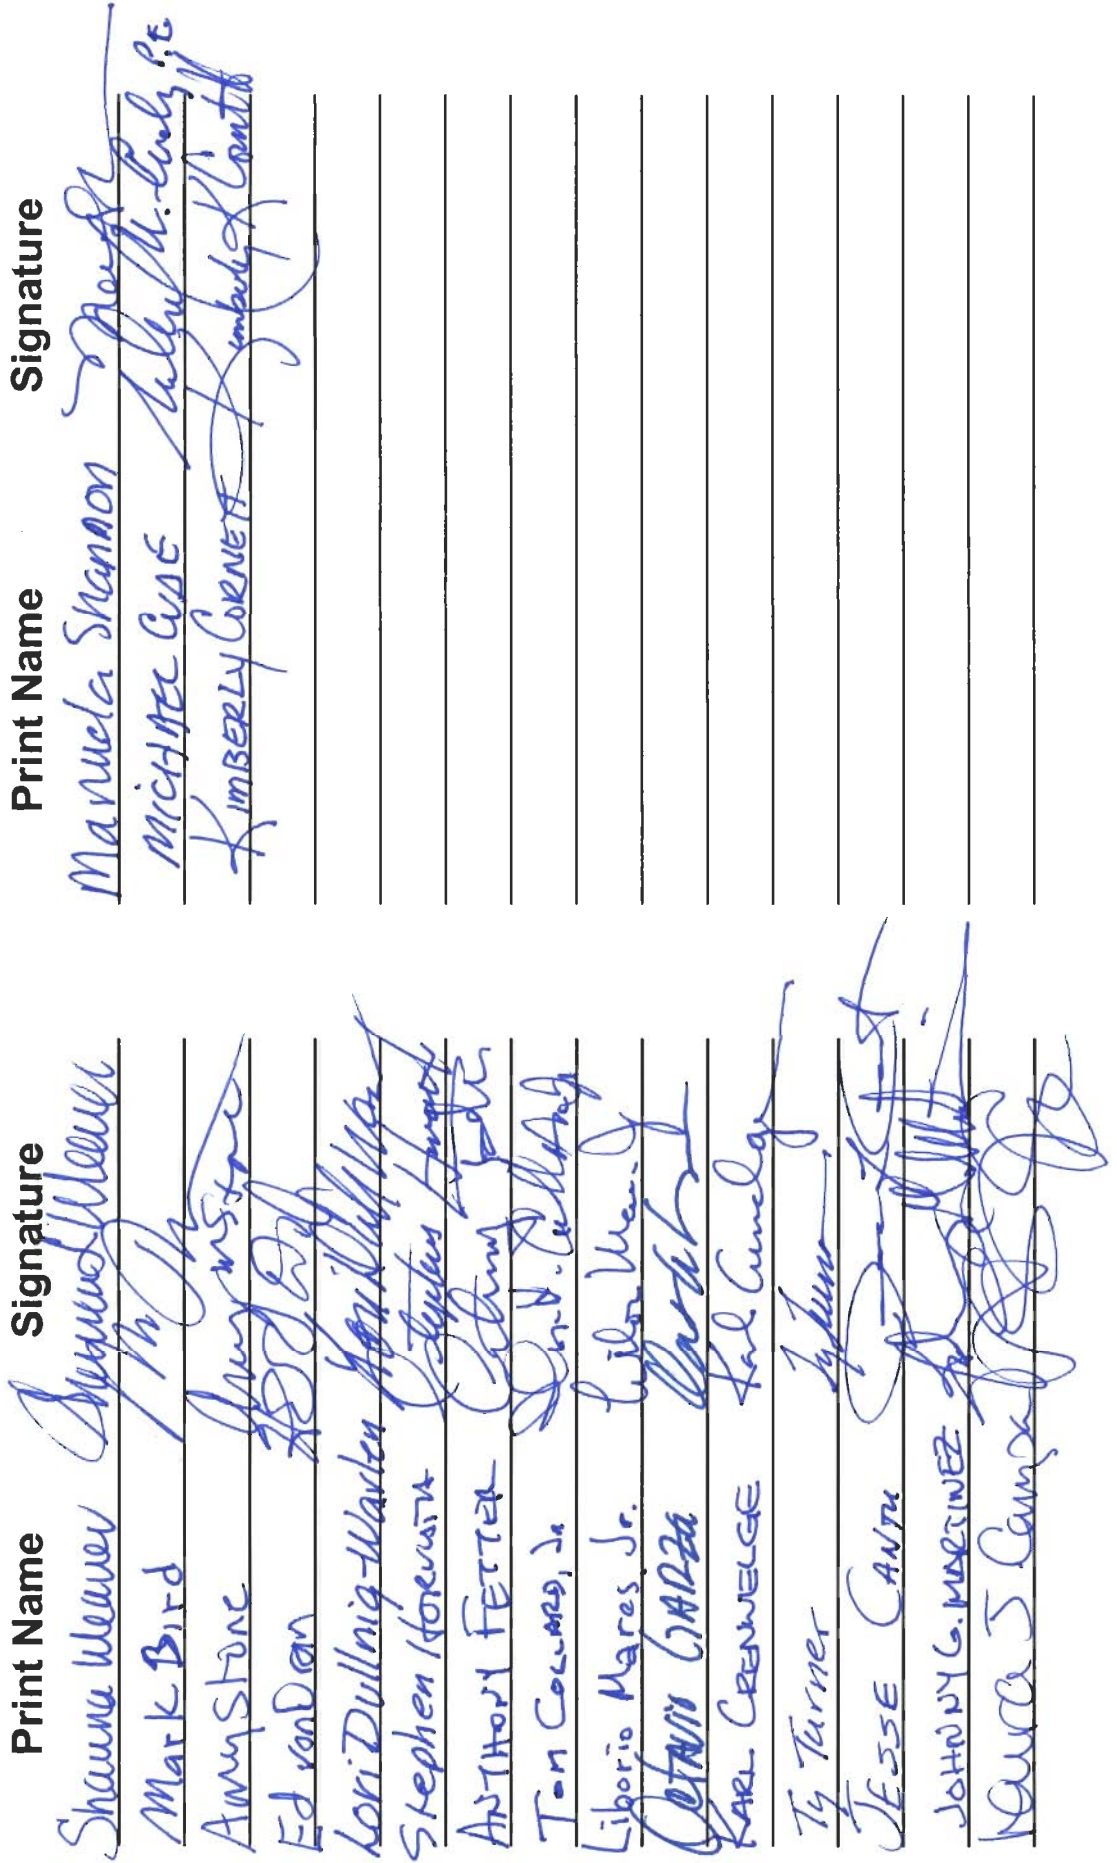 Print Name Signature Print Name Signature
Shauna Weaver Shauna Weaver Manuela Shannon
Mark Bird MICHAEL CUDE P.E
Amy Stone Amy M Stone KIMBERLY CORNETT Kimberly K Cornett
Ed vonDran
Lori Dullnig-Warlen
Stephen HORVATH Stephen Horvath
ANTHONY FETTER
TOM COLLARD, Jr
Liborio Mares Jr.
Octavio GARZA
KARL CRENWELGE Karl Crenwelge
Ty Turner Ty Turner
JESSE CANTU
JOHNNY G. MARTINEZ
Laura J Campa